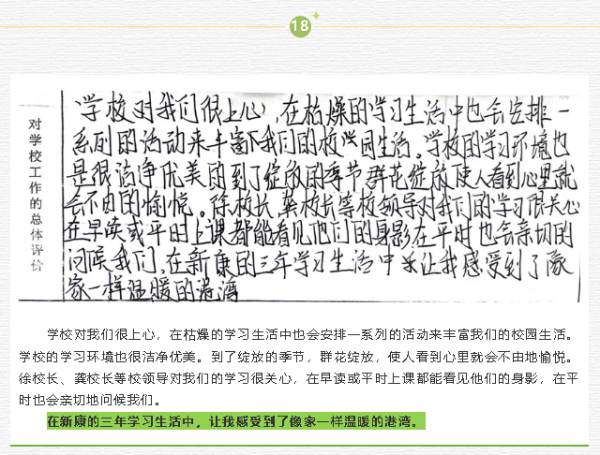 18
对学校工作的总体评价
学校对我们很上心,在枯燥的学习生活中也会安排一
系列的活动来丰富我们的校园生活。学校的学习环境也
是很洁净优美的到了绽放的季节群花绽放使人看到心里就
会不由的愉悦。徐校长,龚校长等校领导对我们的学习很关心
在早读或平时上课都能看见他们的身影在平时也会亲切的
问候我们,在新康的三年学习生活中 让我感受到了像
家一样温暖的港湾
学校对我们很上心，在枯燥的学习生活中也会安排一系列的活动来丰富我们的校园生活。
学校的学习环境也很洁净优美。到了绽放的季节，群花绽放，使人看到心里就会不由地愉悦。
徐校长、龚校长等校领导对我们的学习很关心，在早读或平时上课都能看见他们的身影，在平
时也会亲切地问候我们。
在新康的三年学习生活中，让我感受到了像家一样温暖的港湾。